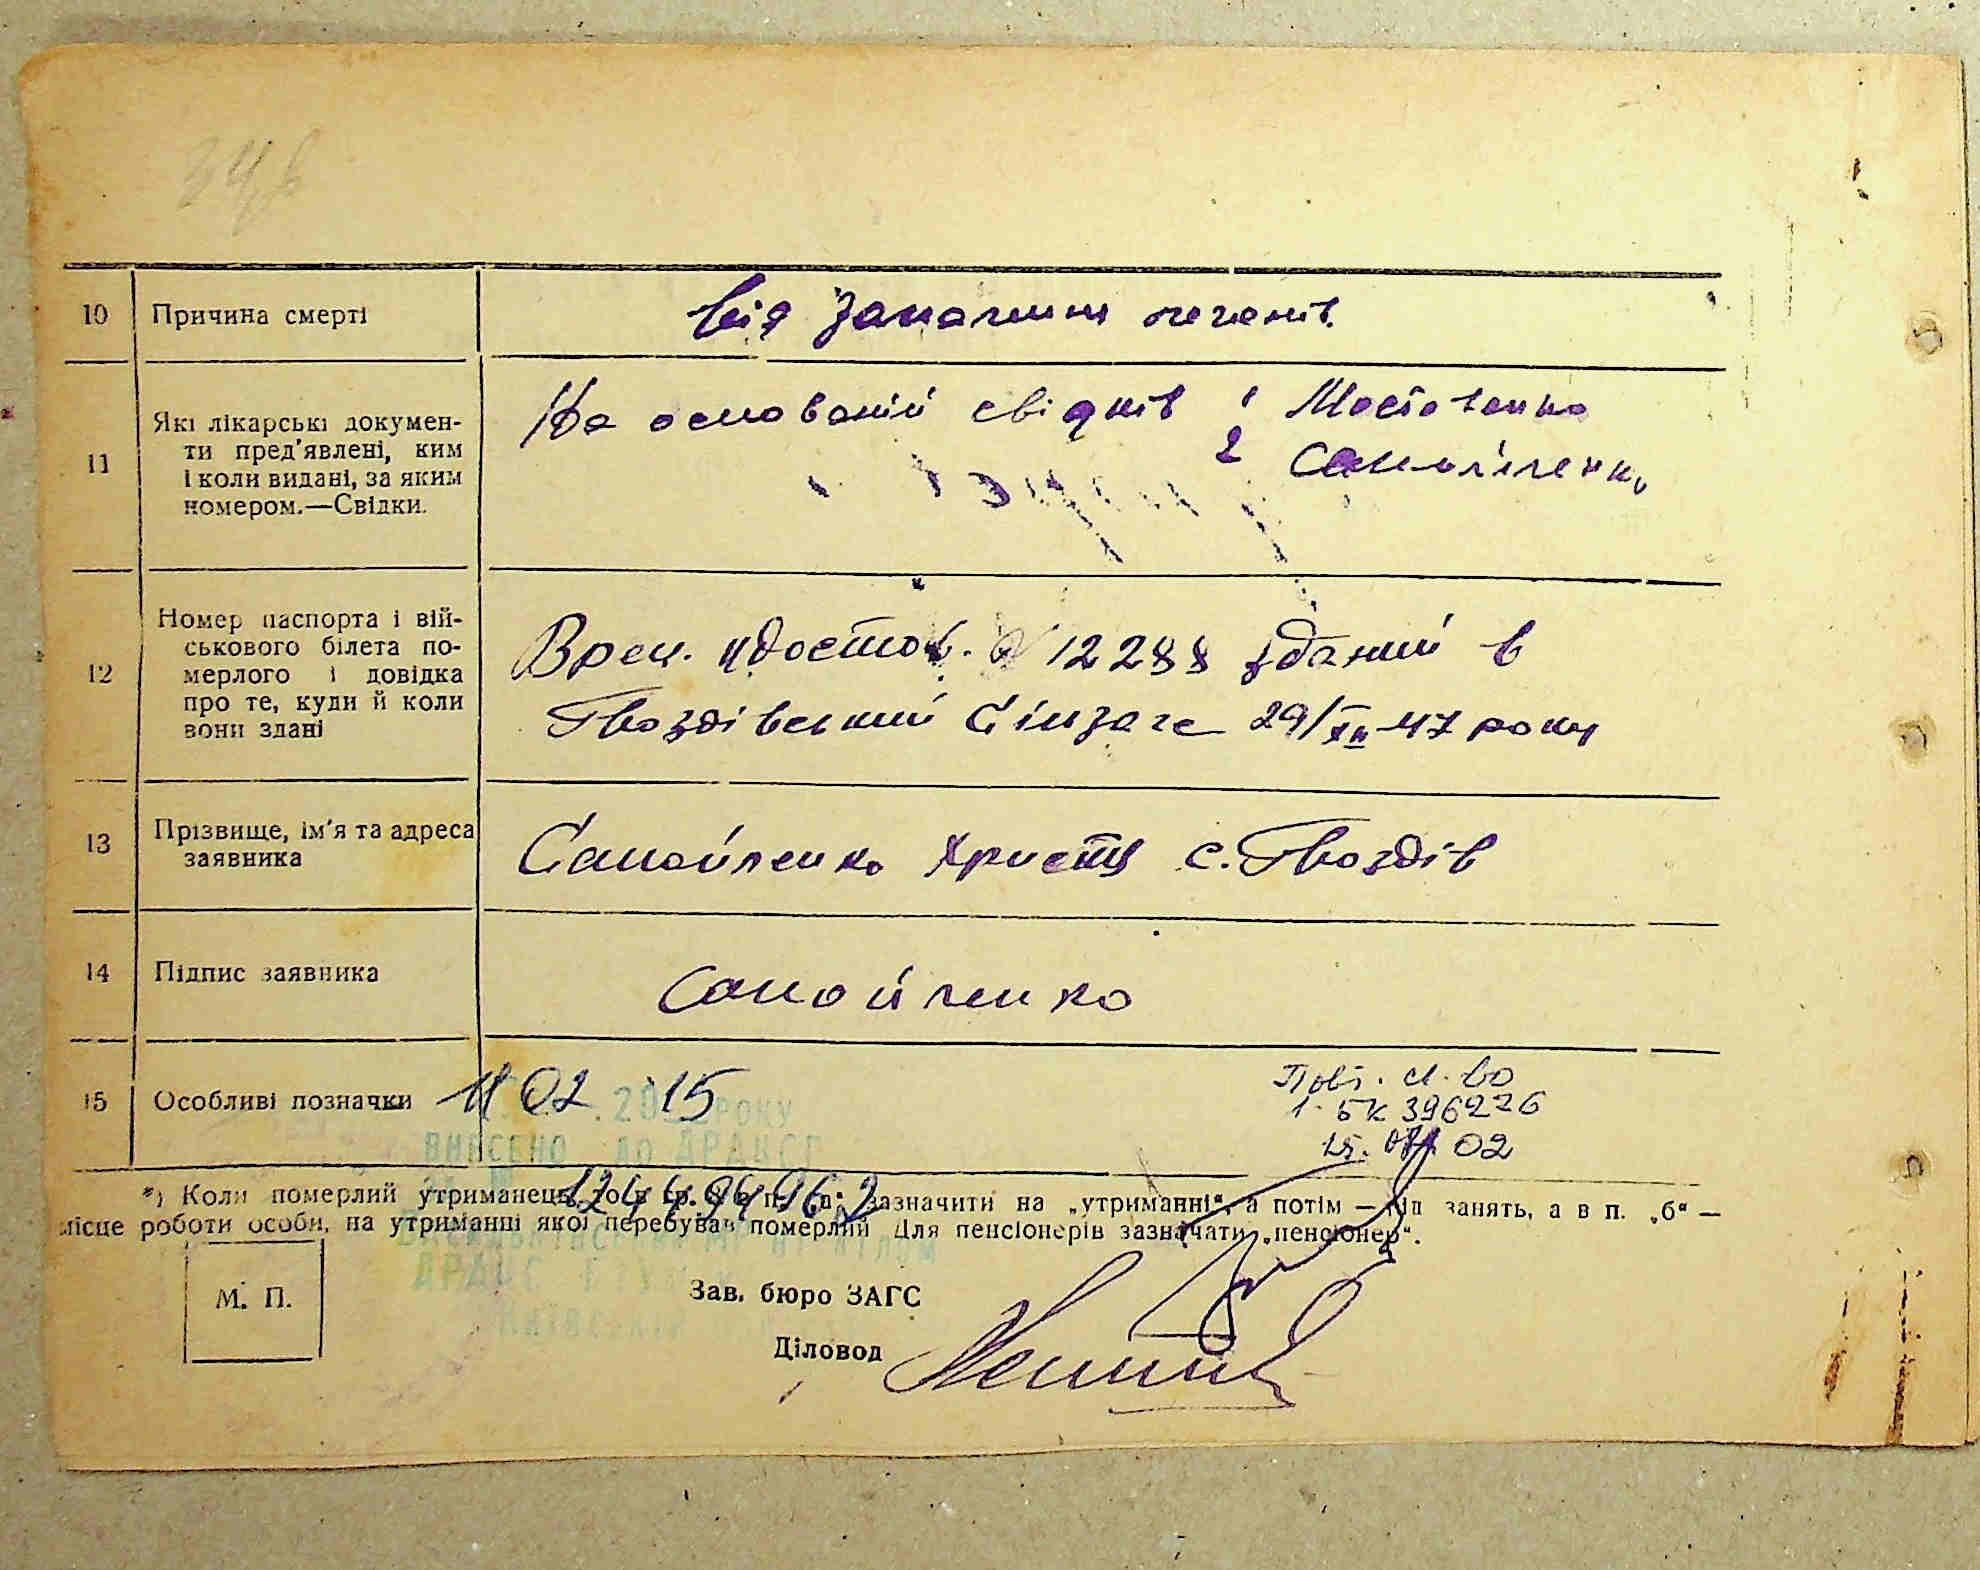 10 Причина смерті
від запалення печенів.
11 Які лікарські докумен-
ти пред'явлені, ким
і коли видані, за яким
номером.—Свідки.
На основаній свідків 1 Мостовенко
2 Самойленко
12 Номер паспорта і вій-
ськового білета по-
мерлого і довідка
про те, куди й коли
вони здані
Врем. удостов. № 12288 зданий в
Гвоздівський сільраде 29/XII-47 року
13 Прізвище, ім'я та адреса
заявника
Самойленко Христя с. Гвоздів
14 Підпис заявника
Самойленко
15 Особливі позначки
11 02 .2015 РОКУ
ВНЕСЕНО ДО ДРАЦСГ
Повт. св-во
1-БК 396226
02
*) Коли померлий утриманець, то в гр. зазначити на „утриманні“, а потім — рід занять, а в п. „б“ —
місце роботи особи, на утриманні якої перебував померлий Для пенсіонерів зазначати „пенсіонер“.
М. П.
Зав. бюро ЗАГС
Діловод